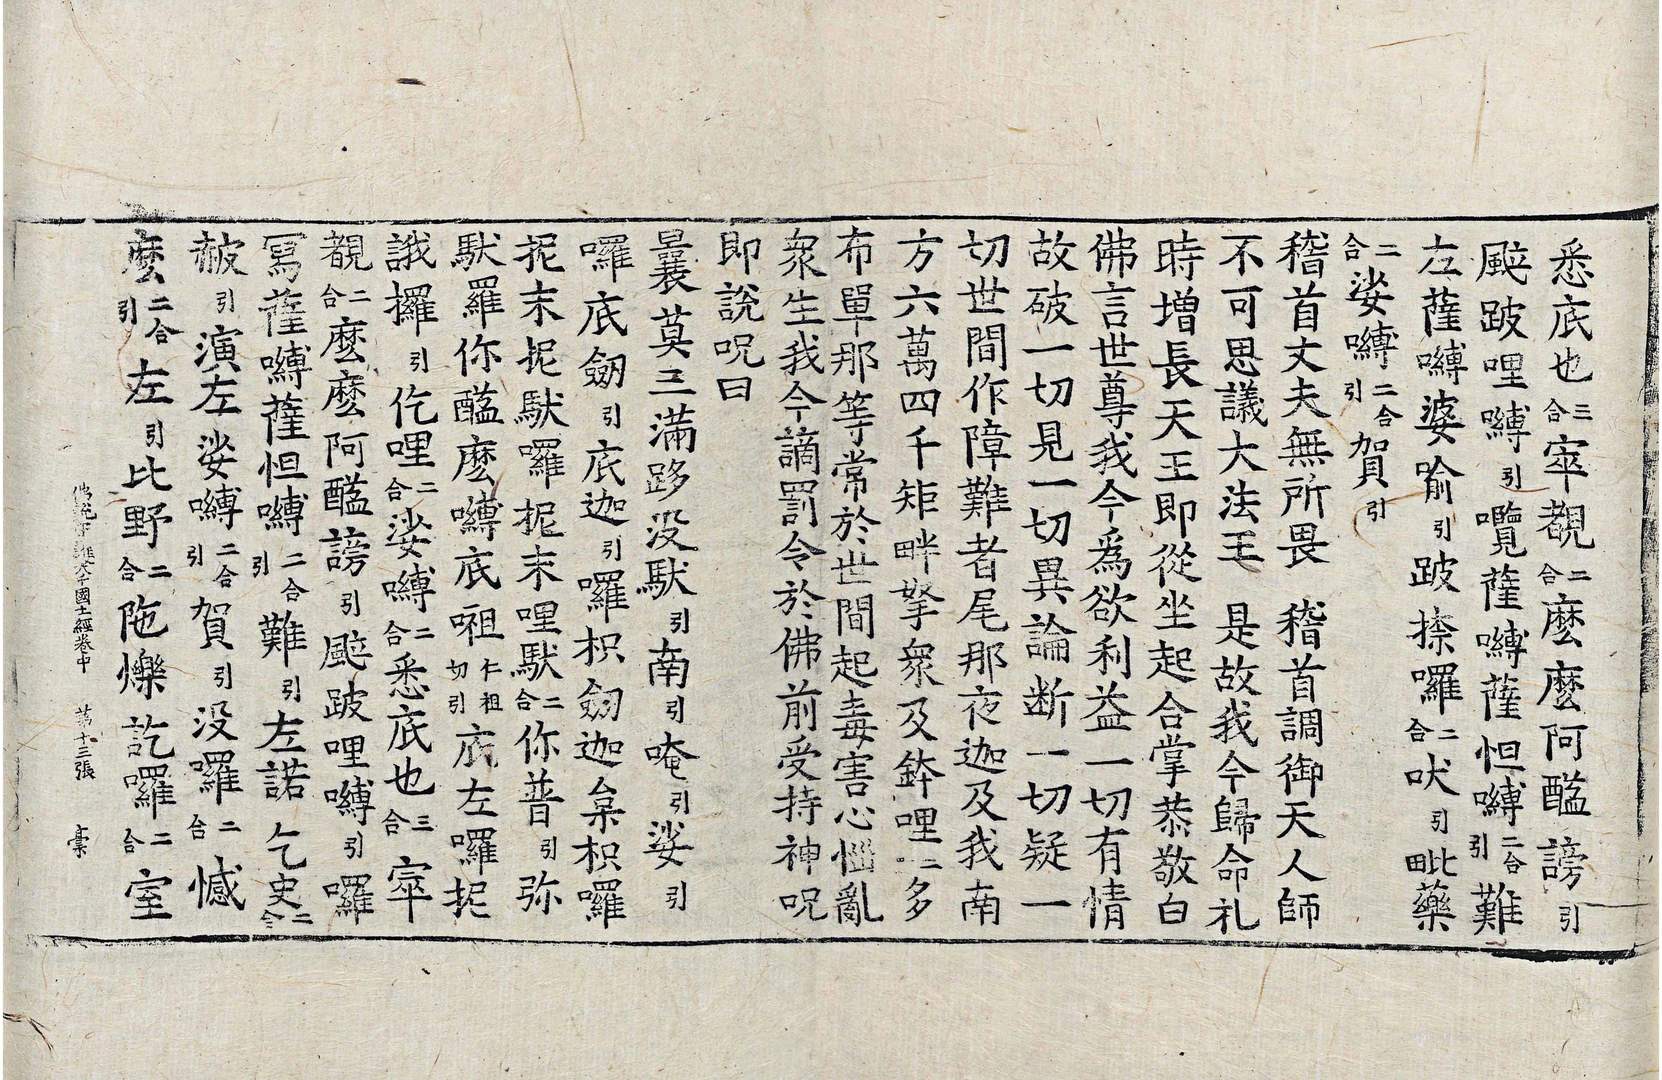 悉底也三合窣覩二合麽麽阿醯謗引
颰跛哩嚩引嚂薩嚩薩怛嚩二合引難
左薩嚩婆喻引跛捺囉二合吠引毗藥
二合娑嚩二合引賀引
稽首丈夫無所畏　稽首調御天人師
不可思議大法王　是故我今歸命礼
時增長天王即從坐起合掌恭敬白
佛言世尊我今爲欲利益一切有情
故破一切見一切異論断一切疑一
切世間作障難者尾那夜迦及我南
方六萬四千矩畔拏衆及鉢哩二多
布單那等常於世間起毒害心惱亂
衆生我今謫罰令於佛前受持神呪
即說呪曰
曩莫三滿跢没馱引南引唵引娑引
囉底劒引底迦引囉枳劒迦枲枳囉
抳末抳馱囉抳末哩馱二合你普引弥
馱羅你醯麽嚩底𠹀仁祖切引底左囉抳
誐攞引仡哩二合娑嚩二合悉底也三合窣
覩二合麽麽阿醯謗引颰跛哩嚩引囉
寫薩嚩薩怛嚩二合引難引左諾乞史二合
赧引演左娑嚩二合引賀引没羅二合憾
麽二合引左引比野二合陁爍訖囉二合室
佛說守護大千國土經卷中　第十三張　稾